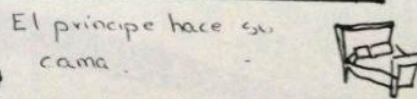 El príncipe hace su
cama.